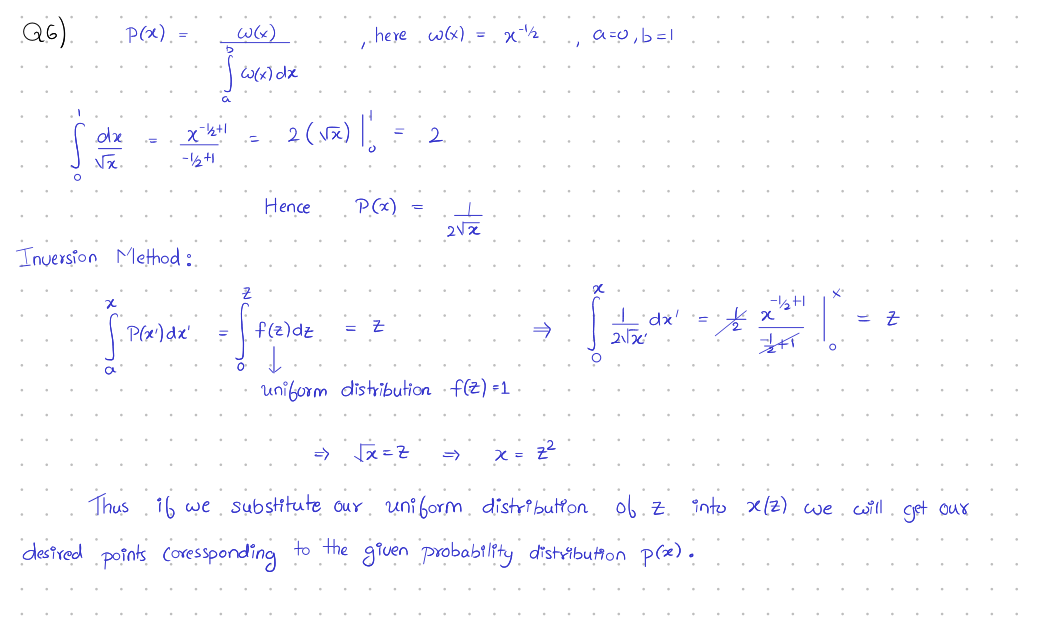 Q6) P(x) = ω(x) / ∫_a^b ω(x)dx , here ω(x) = x^{-1/2} , a=0, b=1
∫_0^1 dx/√x = x^{-1/2+1}/(-1/2+1) = 2(√x)|_0^1 = 2
Hence P(x) = 1/(2√x)
Inversion Method:
∫_a^x P(x')dx' = ∫_0^z f(z)dz = z ⇒ ∫_0^x 1/(2√x') dx' = 1/2 x^{-1/2+1}/(-1/2+1) |_0^x = z
↓
uniform distribution f(z)=1
⇒ √x = z ⇒ x = z²
Thus if we substitute our uniform distribution of z into x(z) we will get our
desired points coressponding to the given probability distribution p(x).